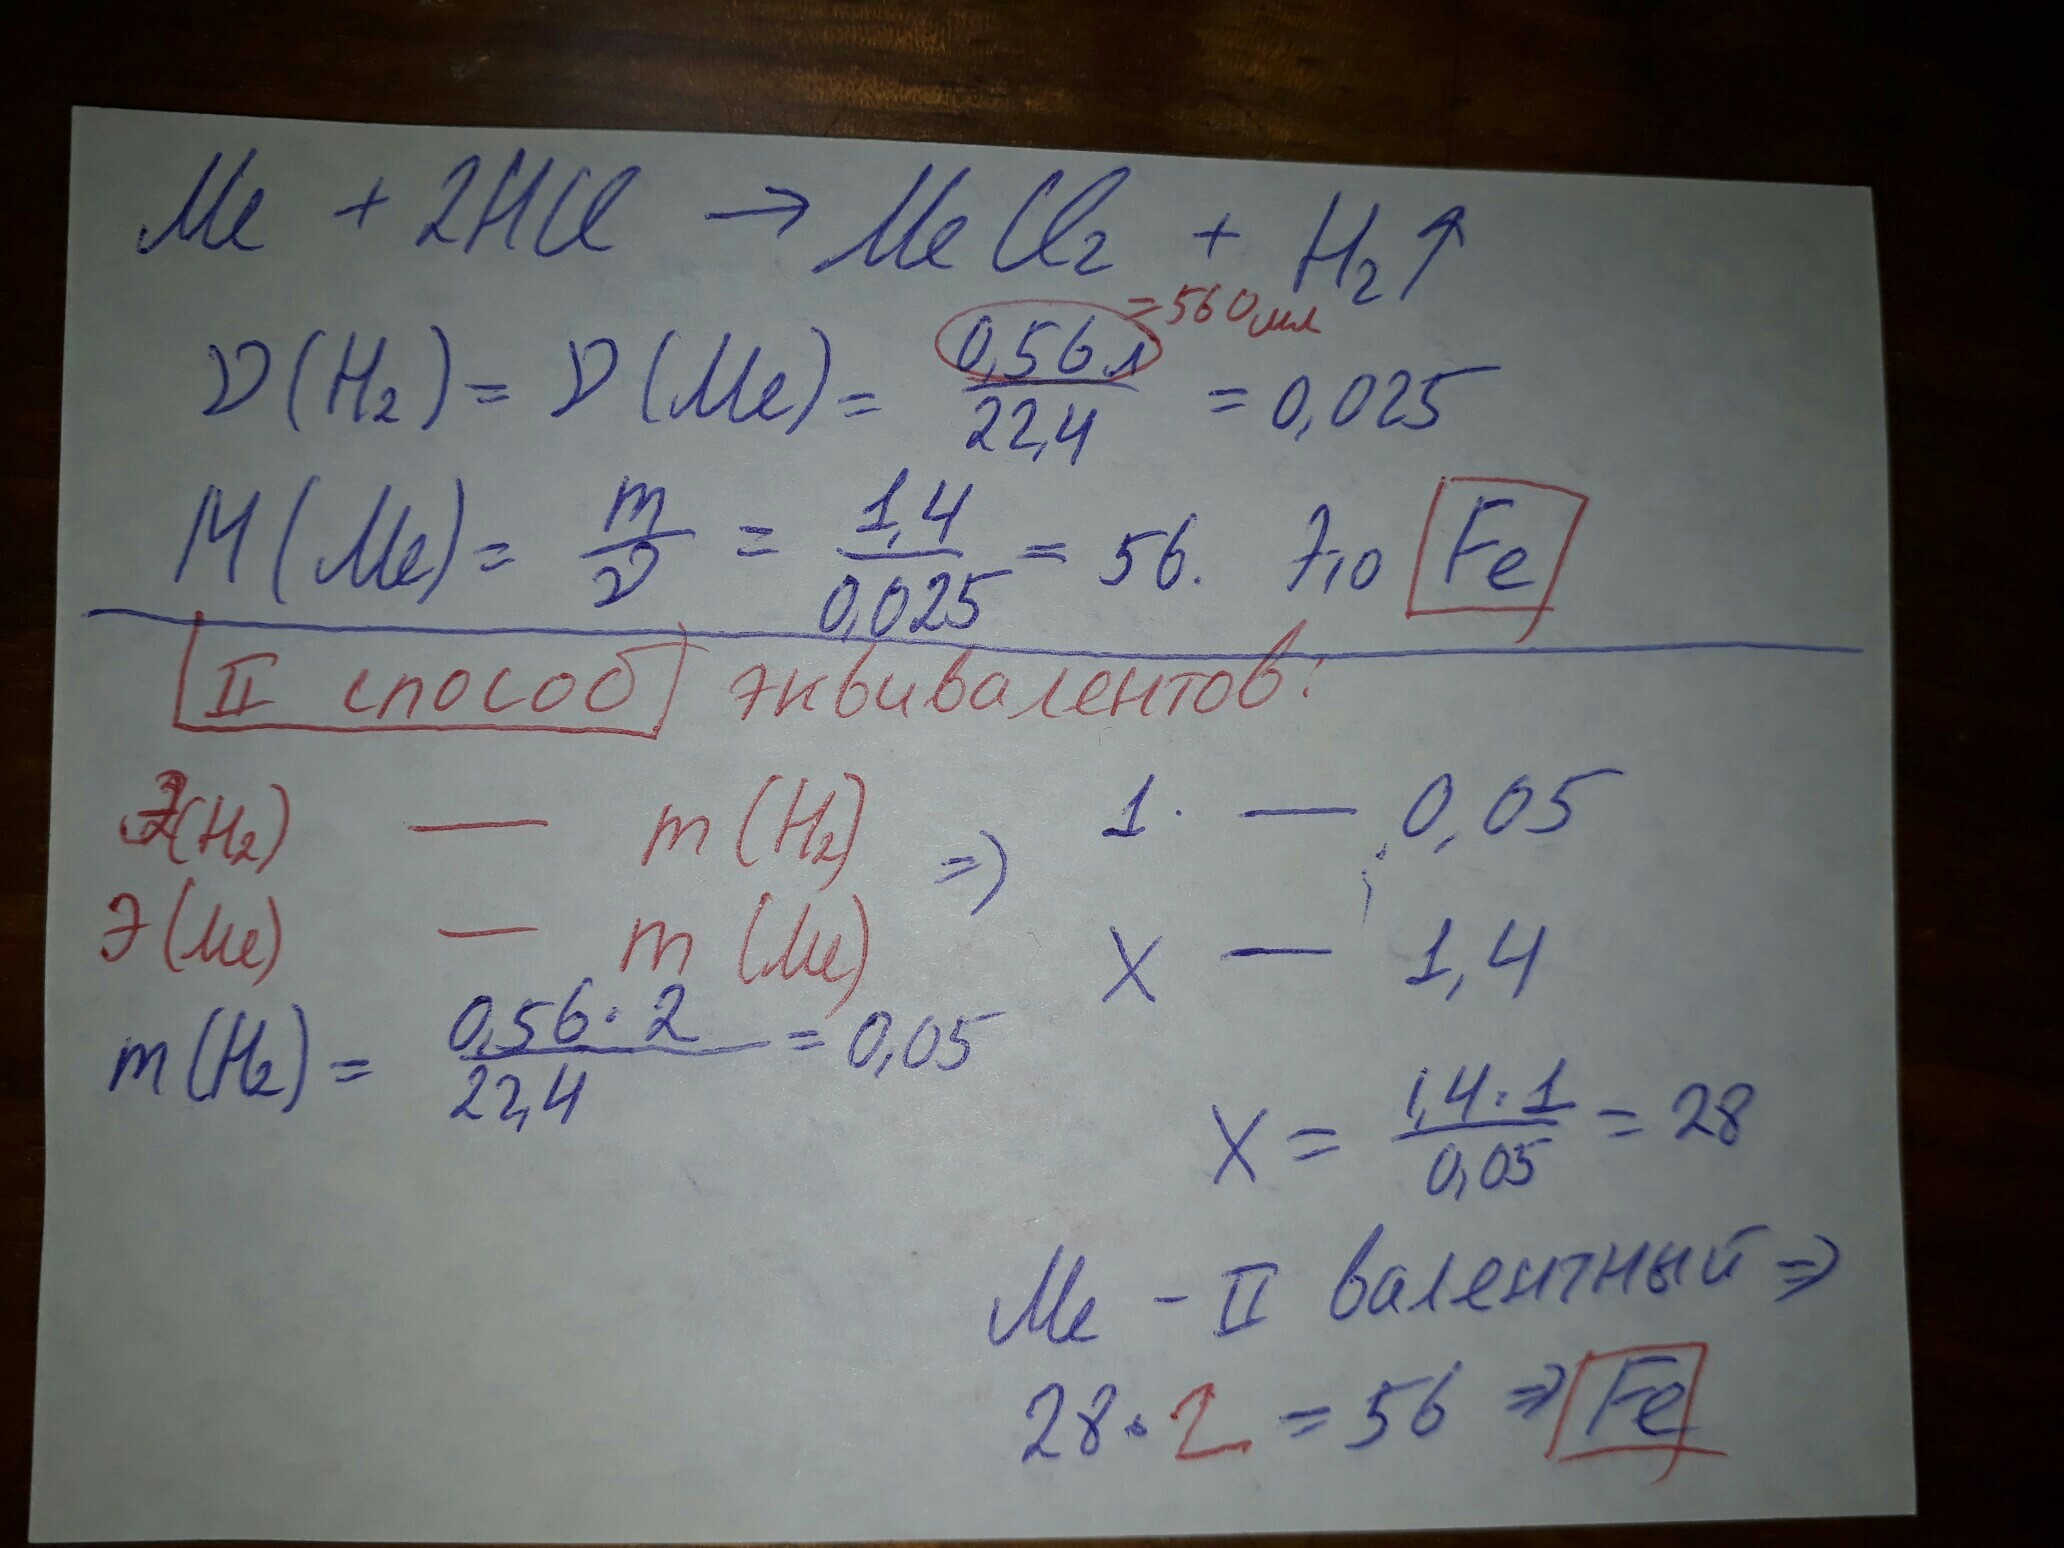 Me + 2HCl → MeCl₂ + H₂↑
= 560 мл
ν(H₂) = ν(Me) = 0,56 л / 22,4 = 0,025
M(Me) = m / ν = 1,4 / 0,025 = 56. Это Fe
II способ эквивалентов:
Э(H₂) — m(H₂) => 1. — 0,05
Э(Me) — m(Me) X — 1,4
m(H₂) = 0,56 · 2 / 22,4 = 0,05
X = 1,4 · 1 / 0,05 = 28
Me - II валентный =>
28 · 2 = 56 => Fe